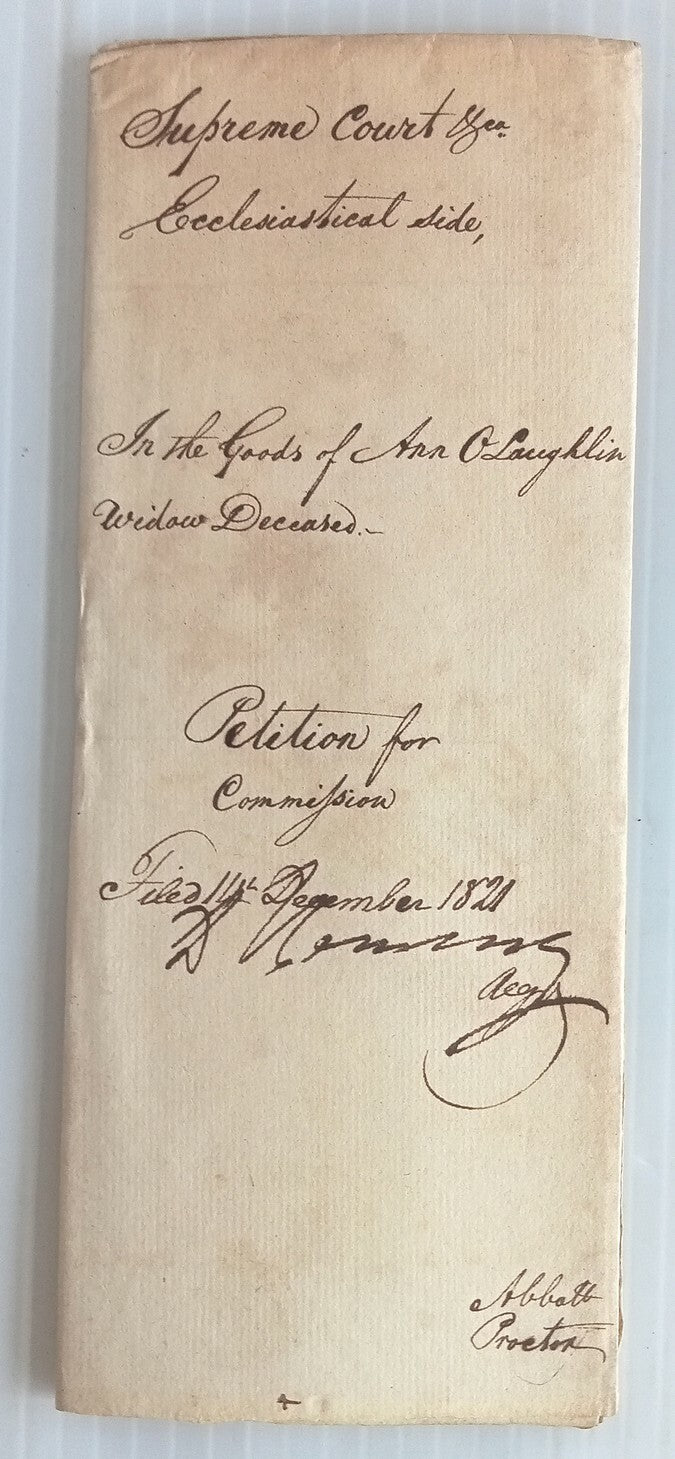 Supreme Court &ca.
Ecclesiastical side,
In the Goods of Ann O Laughlin
Widow Deceased.-
Petition for
Commission
Filed 14th December 1821
D
Regr
Abbott
Proctor